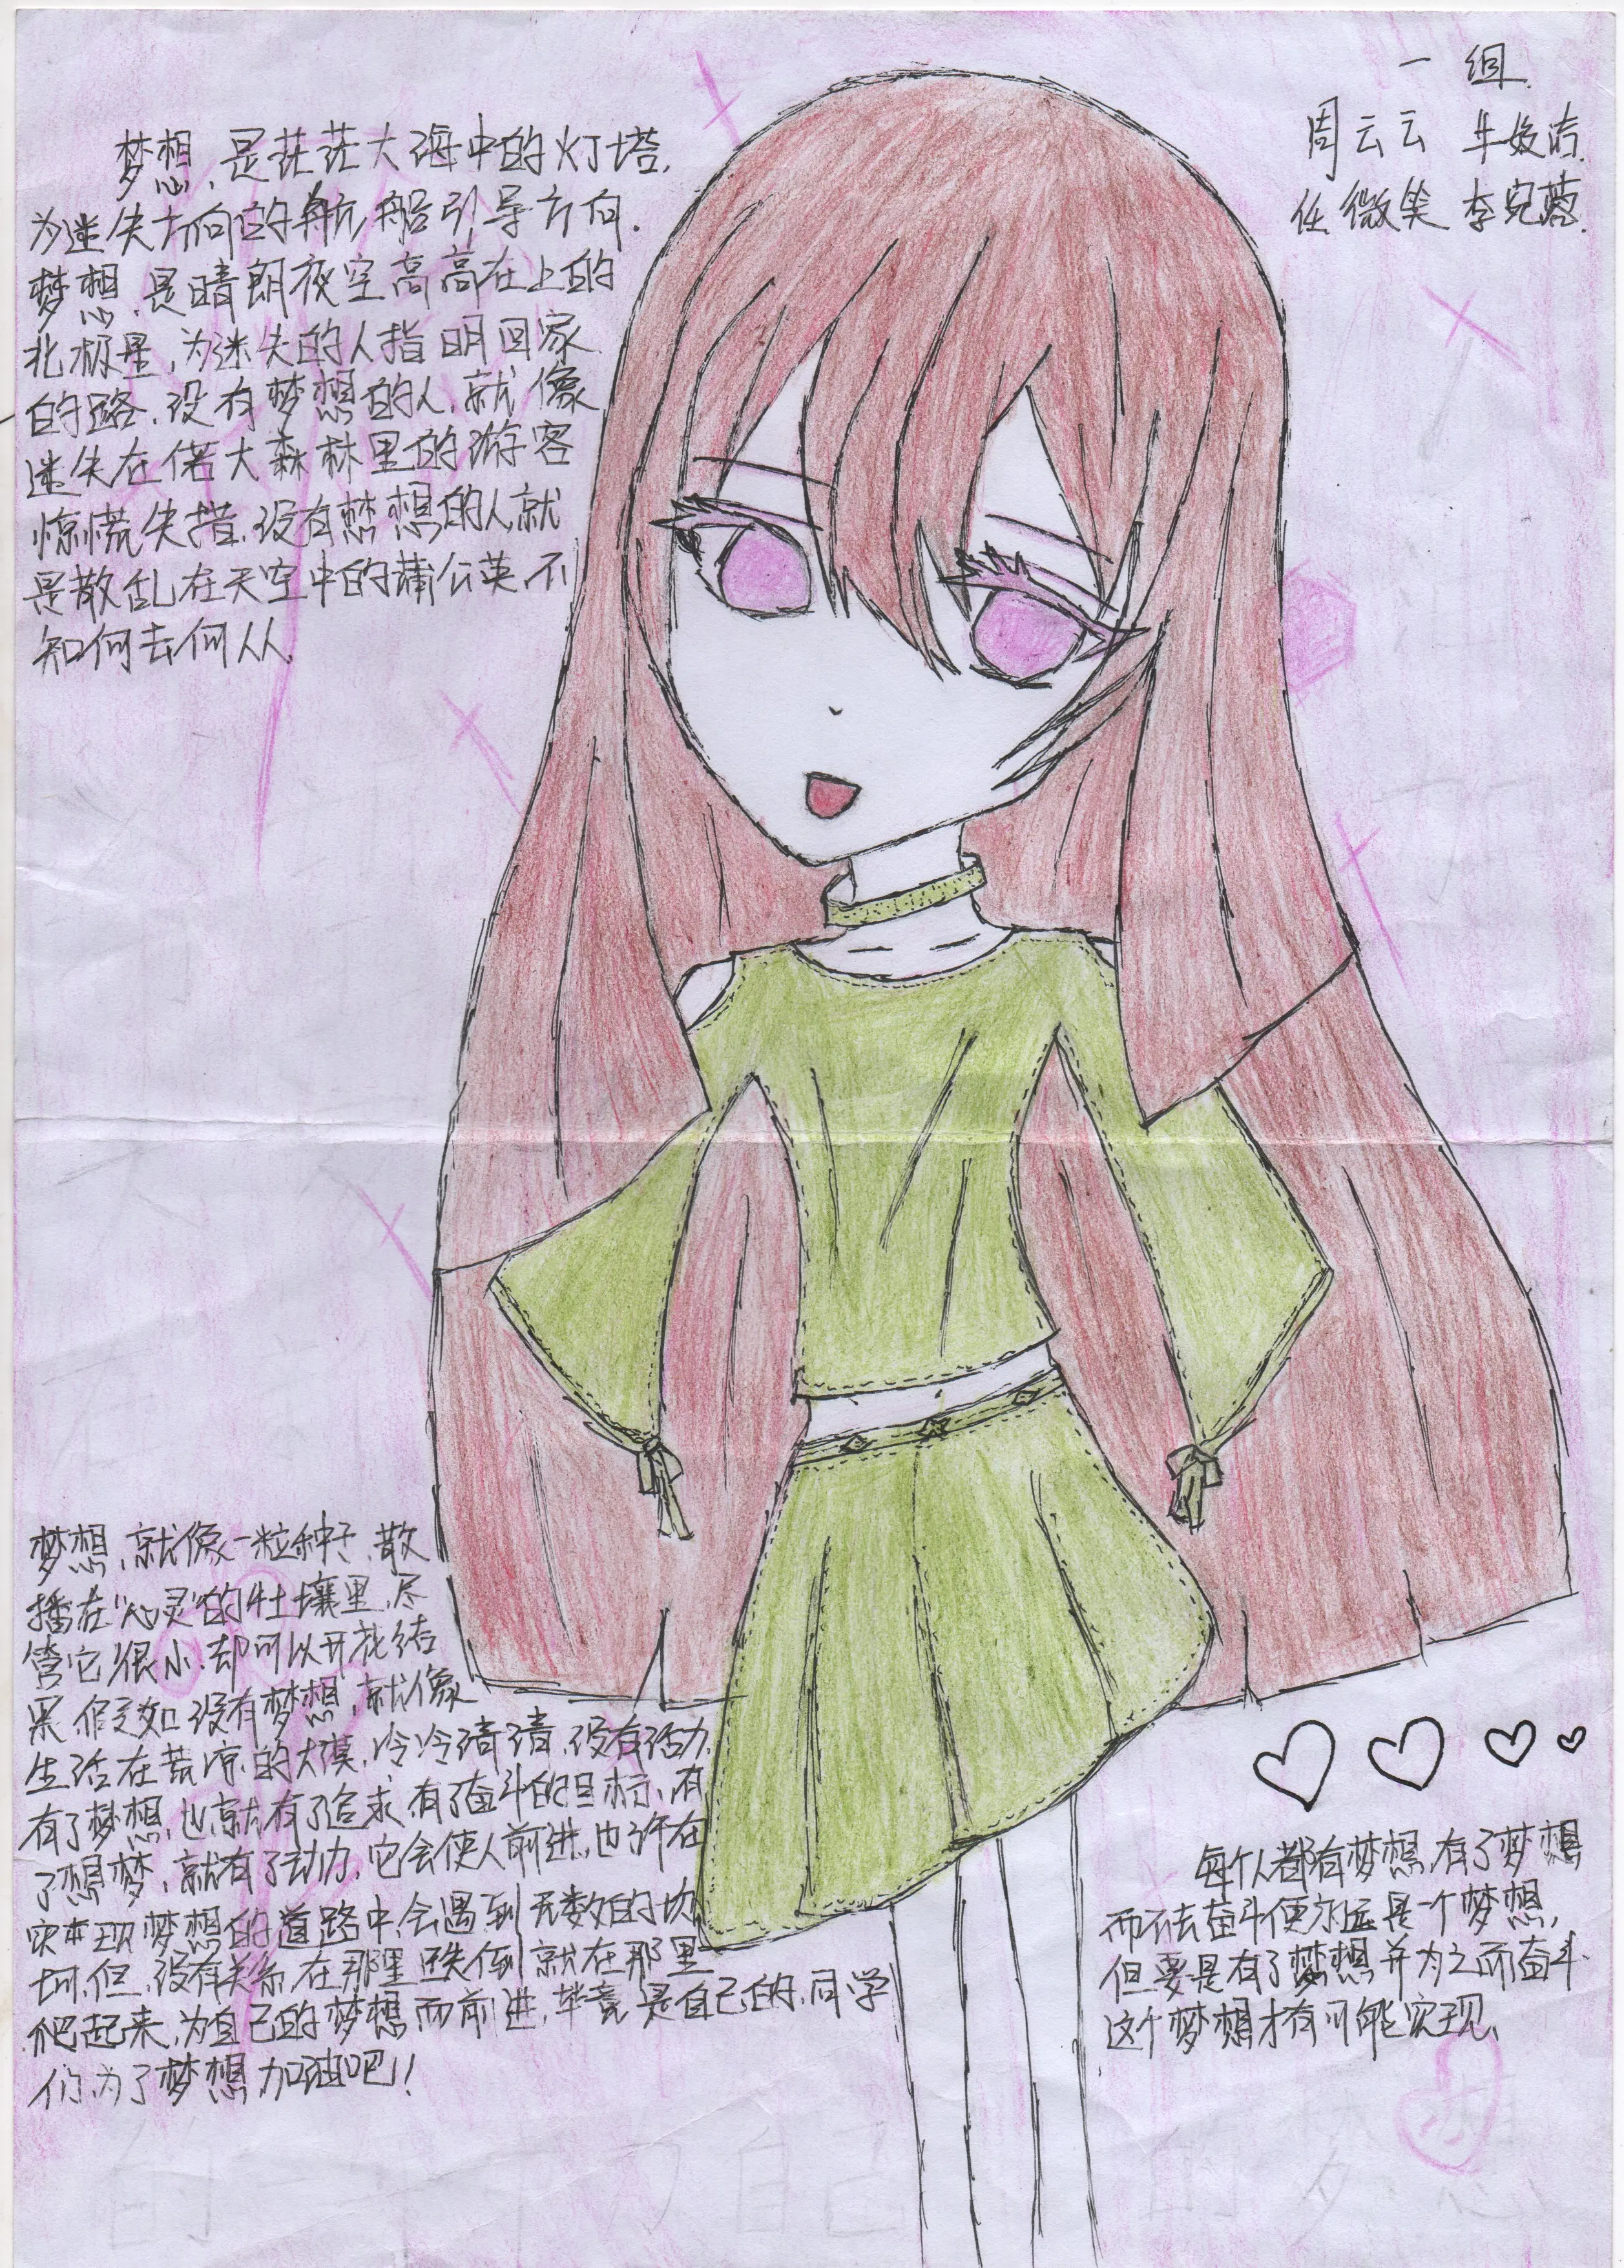 一组
周云云 牛姣洁
任微笑 李宛蓉
梦想,是茫茫大海中的灯塔,
为迷失方向的航船引导方向.
梦想,是晴朗夜空高高在上的
北极星,为迷失的人指明回家
的路.没有梦想的人,就像
迷失在偌大森林里的游客
惊慌失措.没有梦想的人就
是散乱在天空中的蒲公英,不
知何去何从.
梦想,就像一粒种子,散
播在“心灵”的土壤里,尽
管它很小,却可以开花结
果,假如没有梦想,就像
生活在荒凉的大漠,冷冷清清,没有活力.
有了梦想,也就有了追求,有了奋斗的目标,有
了想梦,就有了动力,它会使人前进,也许在
实现梦想的道路中,会遇到无数的坎
坷,但,没有关系,在那里跌倒就在那里
爬起来,为自己的梦想而前进,毕竟是自己的,同学
们,为了梦想加油吧!!
每个人都有梦想,有了梦想
而不去奋斗便永远是一个梦想,
但要是有了梦想并为之而奋斗.
这个梦想才有可能实现、